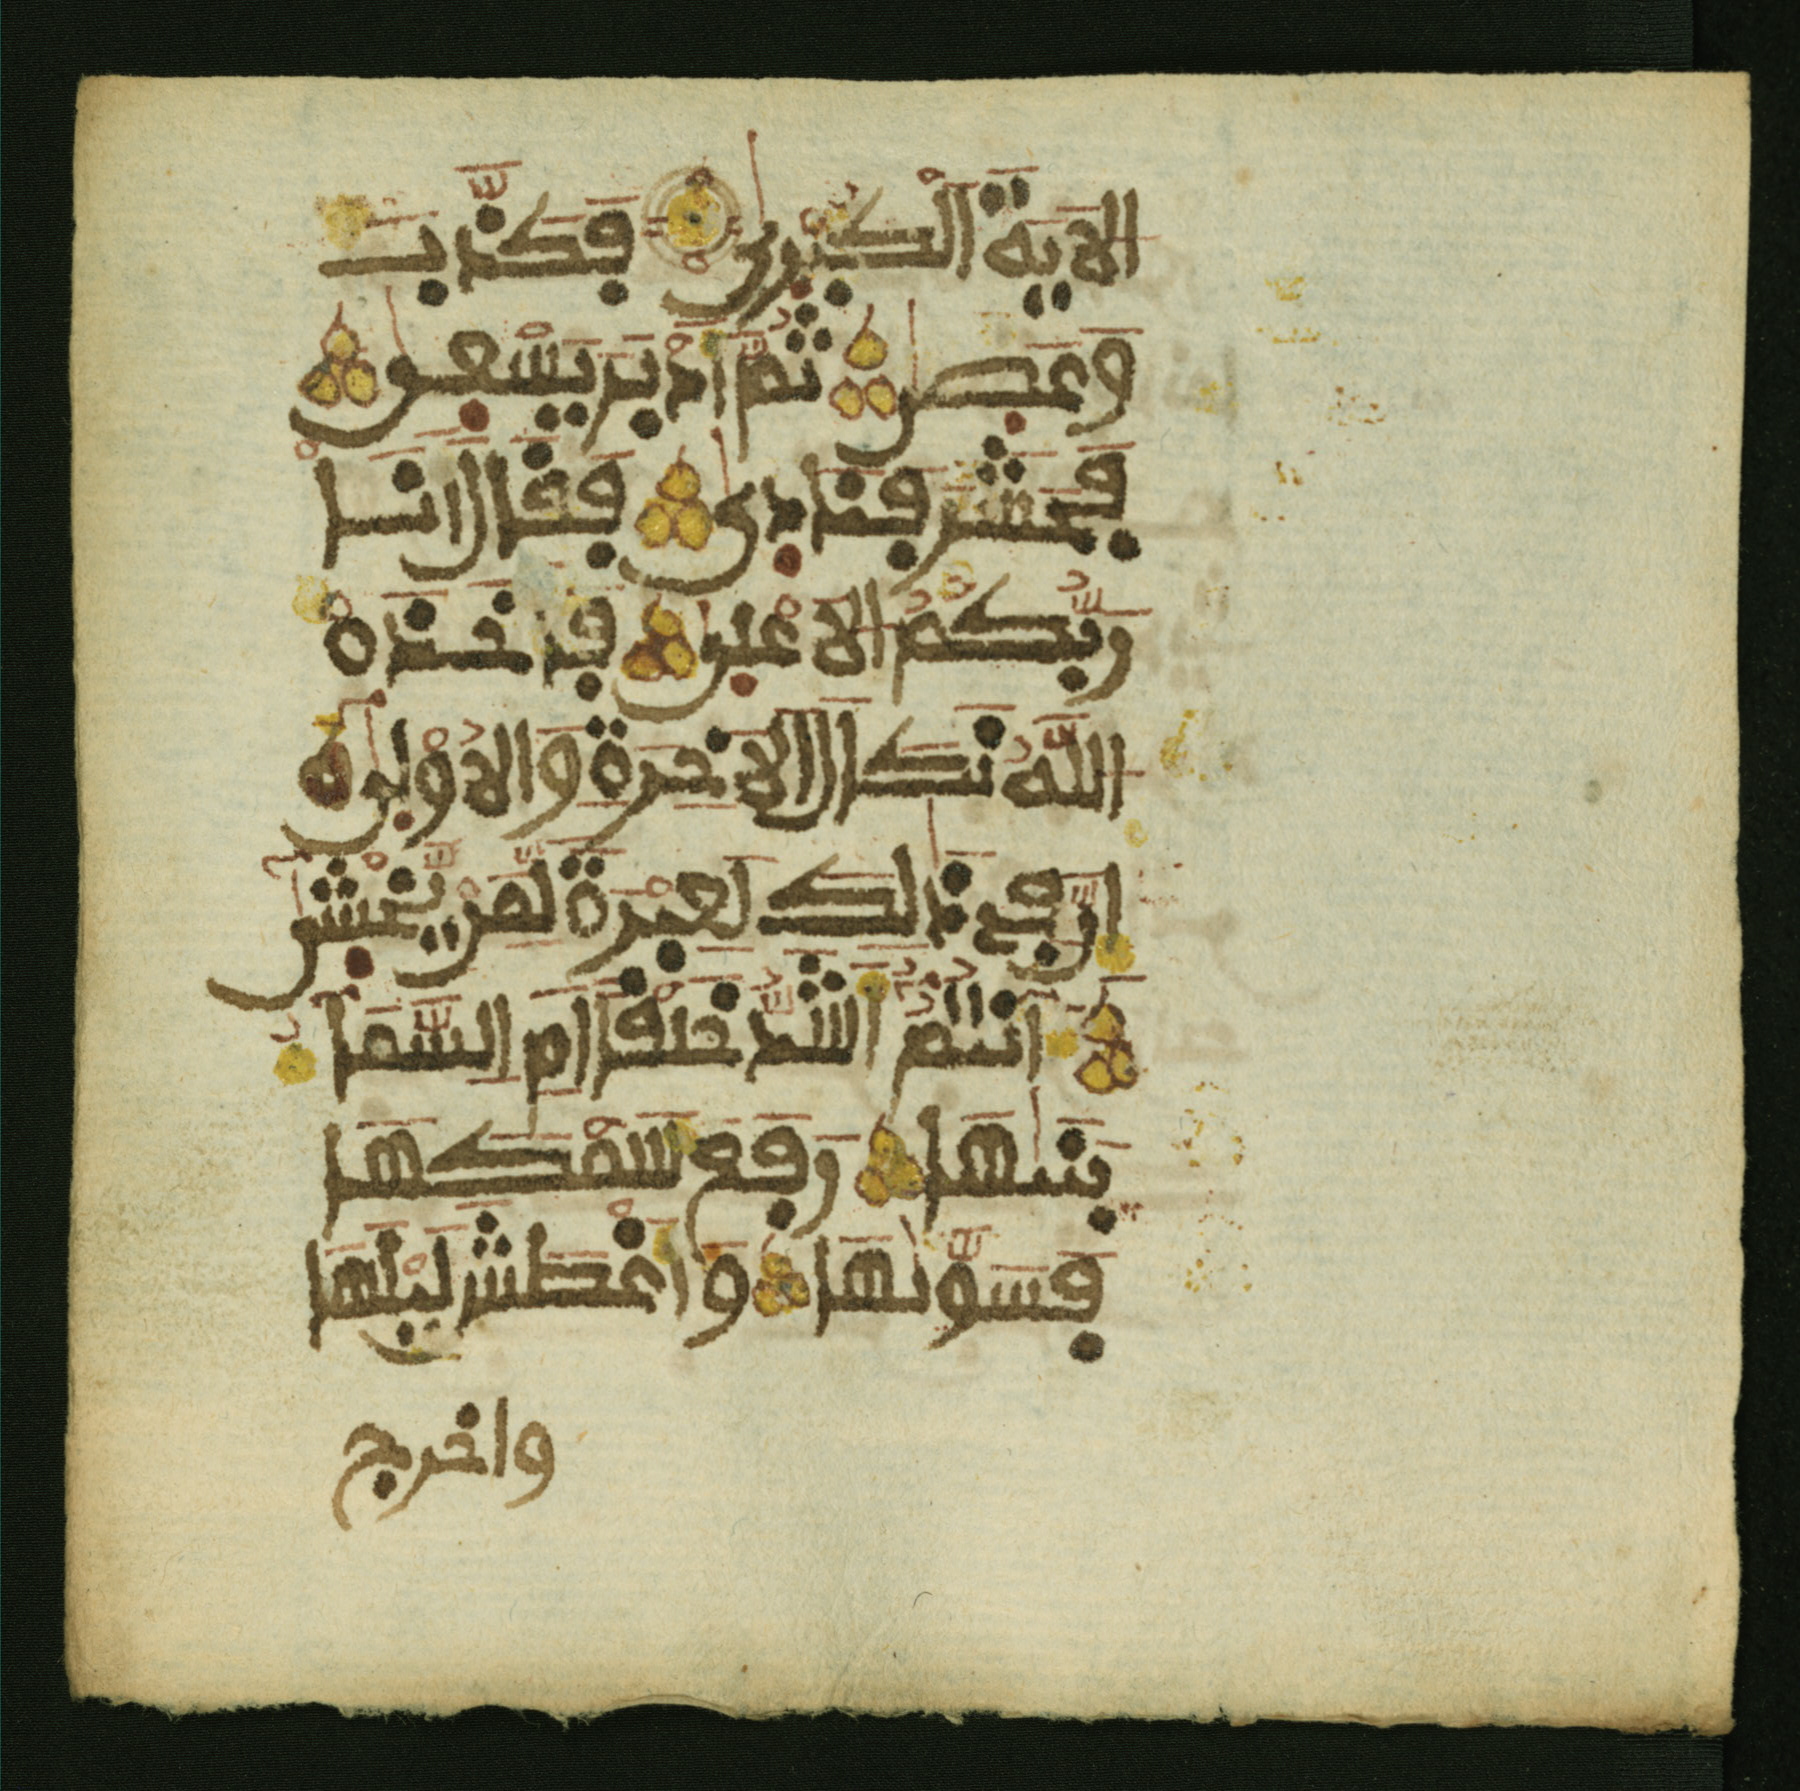 الاية الكبرى فكذب
وعصى ثم ادبر يسعى
فحشر فنادى فقال انا
ربكم الاعلى فاخذه
الله نكال الاخرة والاولى
ان في ذلك لعبرة لمن يخشى
ءانتم اشد خلقا ام السما
بنيها رفع سمكها
فسويها واغطش ليلها
واخرج